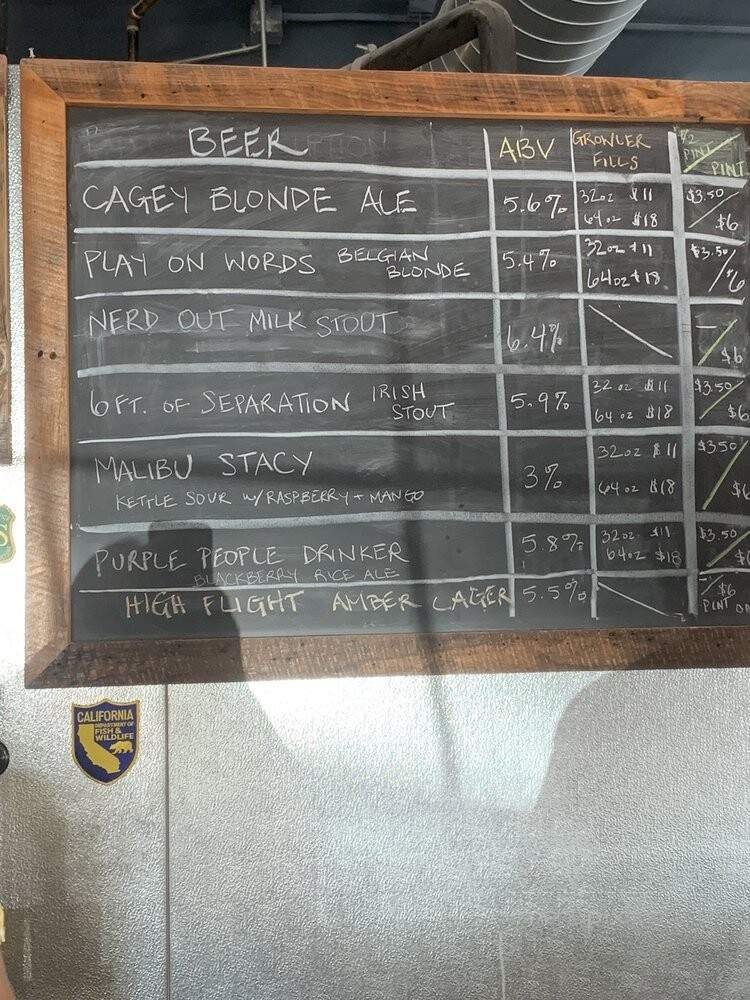 BEER ABV GROWLER FILLS 1/2 PINT / PINT
CAGEY BLONDE ALE 5.6% 32oz $11 $3.50
64oz $18 $6
PLAY ON WORDS BELGIAN BLONDE 5.4% 32oz $11 $3.50
64oz $18 $6
NERD OUT MILK STOUT 6.4% — $6
6 FT. OF SEPARATION IRISH STOUT 5.9% 32oz $11 $3.50
64oz $18 $6
MALIBU STACY 3% 32oz $11 $3.50
KETTLE SOUR W/ RASPBERRY + MANGO 64oz $18
PURPLE PEOPLE DRINKER 5.8% 32oz $11 $3.50
BLACKBERRY RICE ALE 64oz $18
HIGH FLIGHT AMBER LAGER 5.5% — $6
PINT
CALIFORNIA
DEPARTMENT OF
FISH &
WILDLIFE